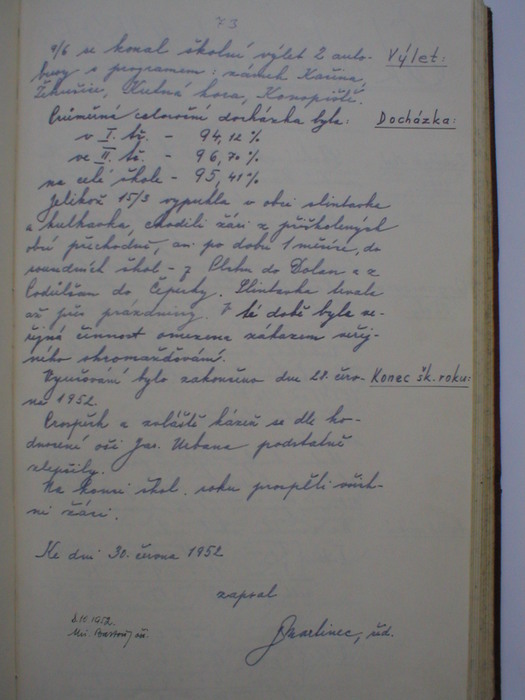 73
9/6 se konal školní výlet 2 auto-
Výlet:
busy s programem: zámek Kačina,
Žehušice, Kutná hora, Konopiště.
Průměrná celoroční docházka byla:
Docházka:
v I. tř. - 94,12 %
ve II. tř. - 96,70 %
na celé škole - 95,41 %
Jelikož 15/3 vypukla v obci slintavka
a kulhavka, chodili žáci z přiškolených
obcí přechodně, asi po dobu 1 měsíce, do
sousedních škol - z Plchu do Dolan a z
do Čeperky. Slintavka trvala
až přes prázdniny. V té době byla ve-
řejná činnost omezena zákazem veřej-
ného shromažďování.
Vyučování bylo zakončeno dne 28. červ-
Konec šk. roku:
na 1952.
Prospěch a zvláště kázeň se dle ho-
dnocení oči Jar. Urbana podstatně
zlepšily.
Na konci škol. roku prospěli všich-
ni žáci.
Ke dni 30. června 1952
zapsal
1952.
řed.